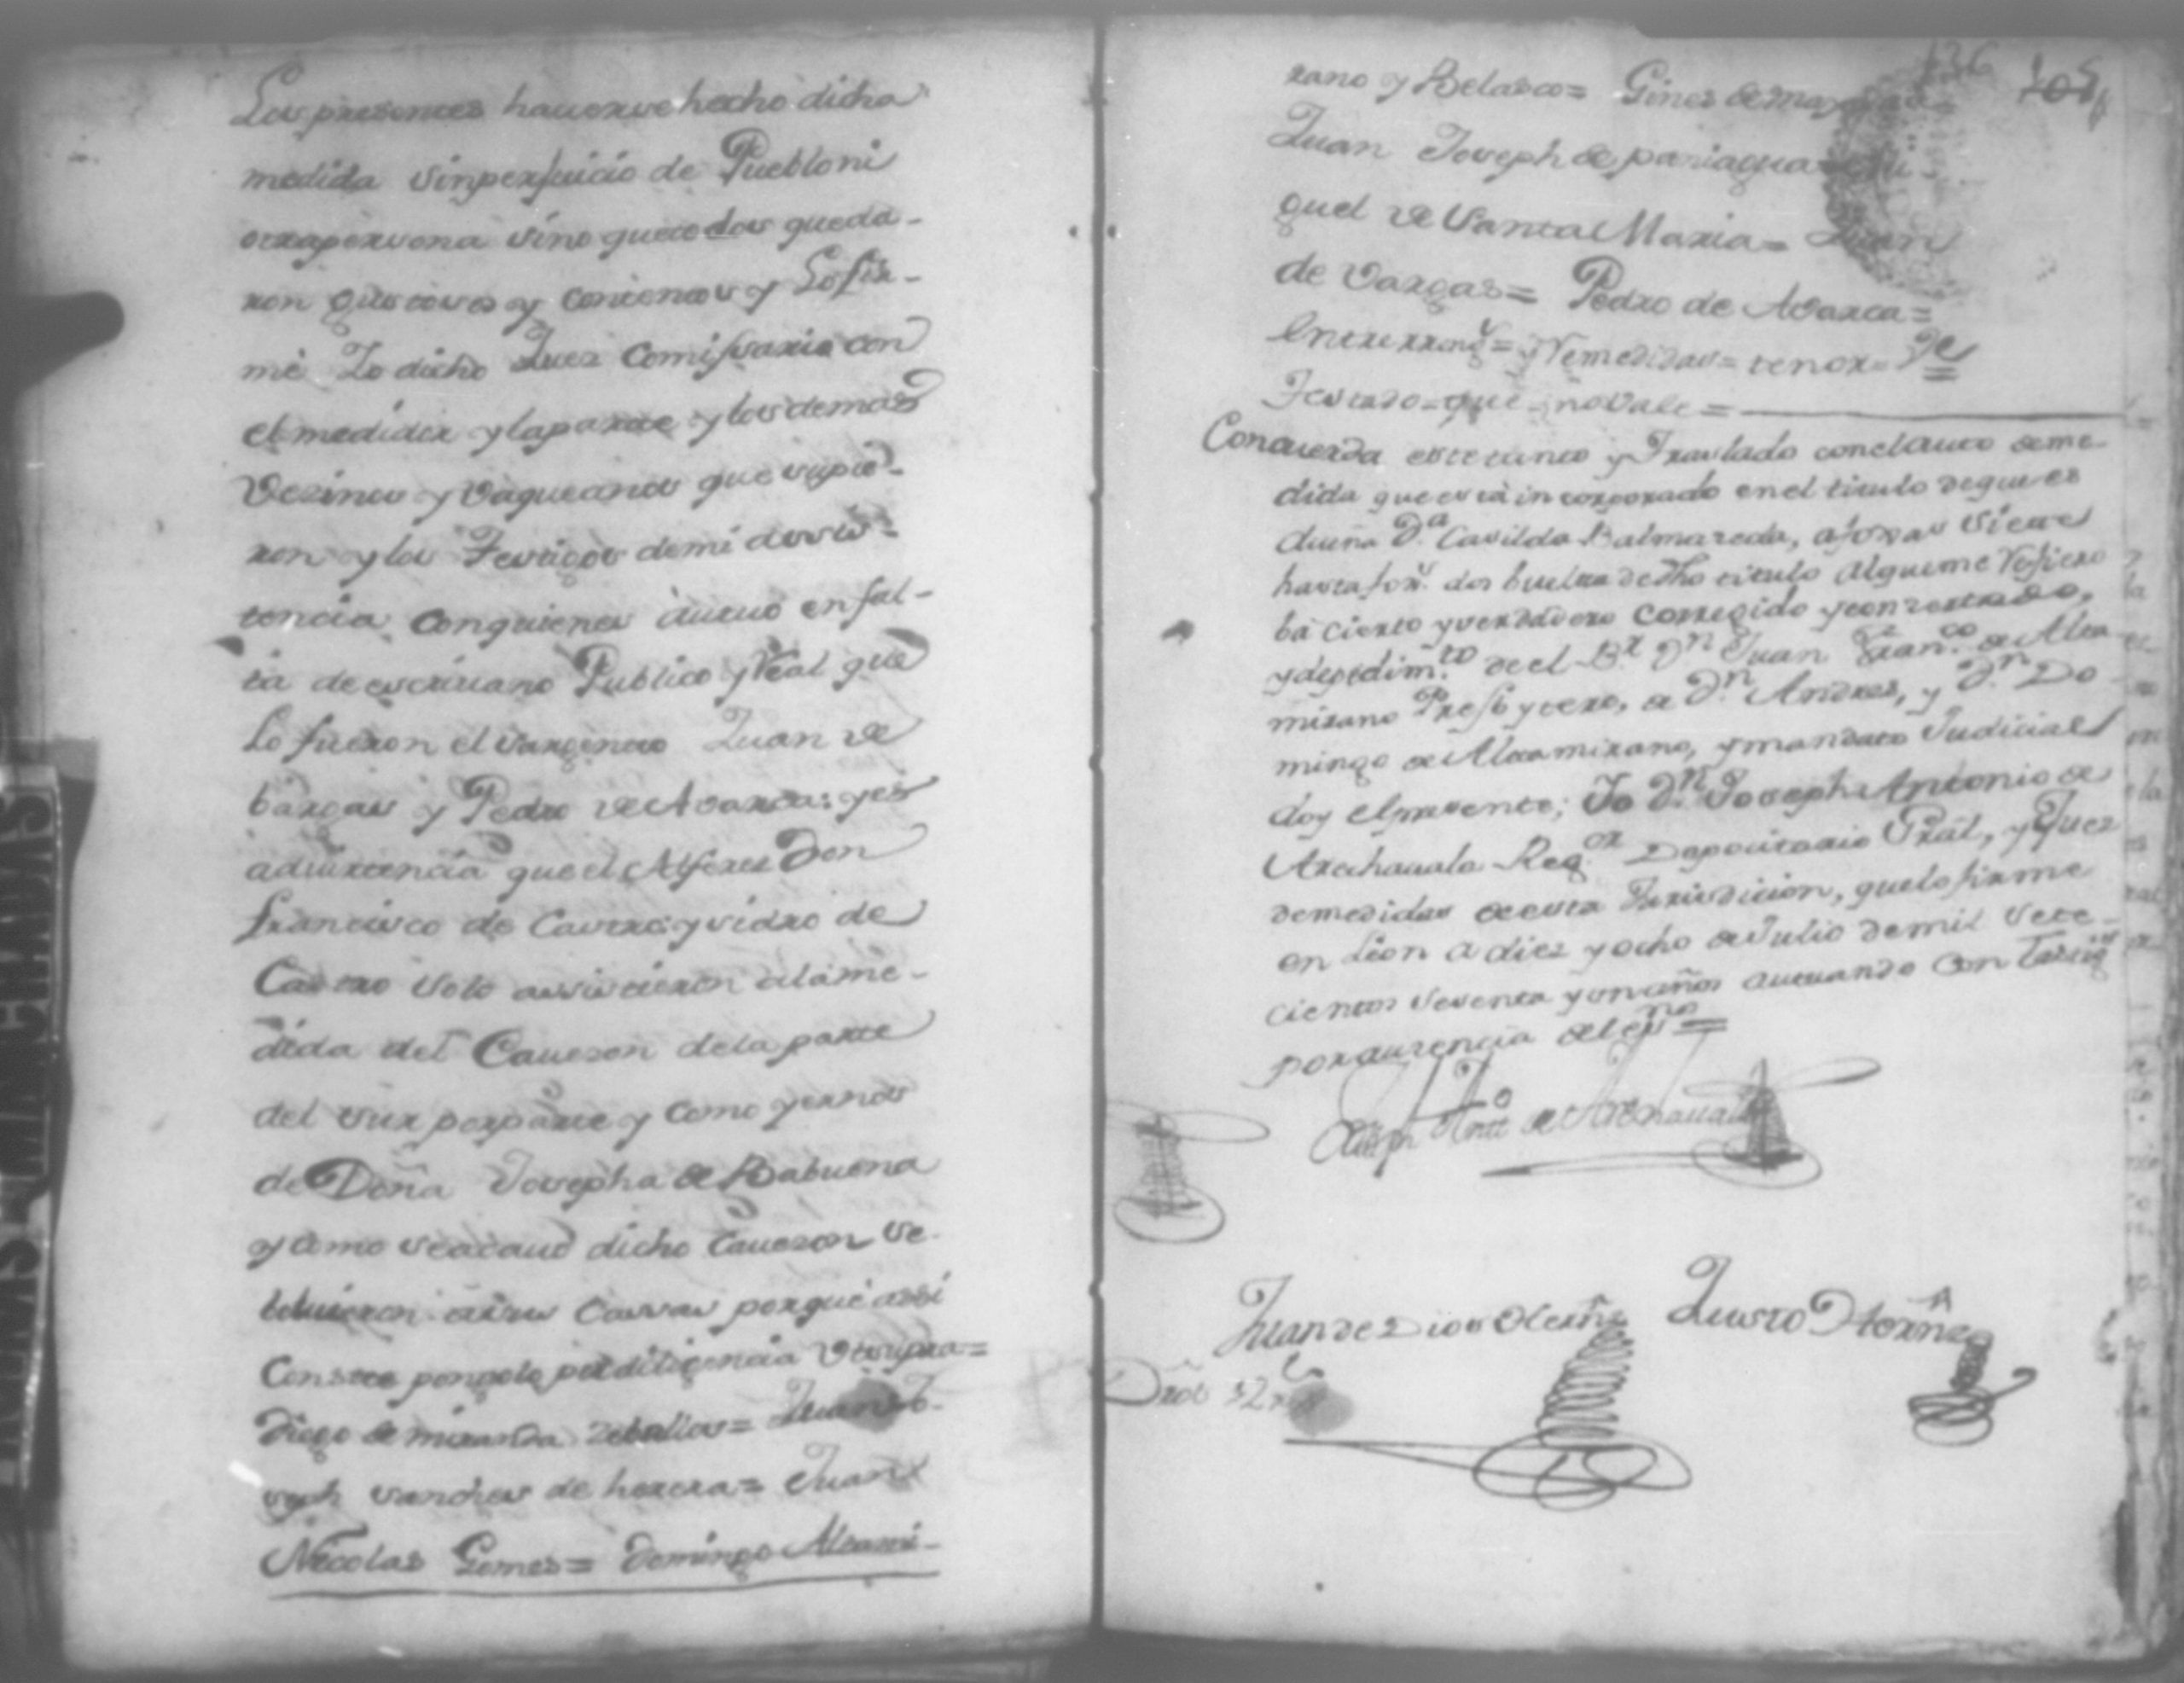 Los presentes hauerse hecho dicha
medida sin perjuicio de Pueblo ni
otra persona sino que todos queda-
ron gustosos y contentos y Lo fir-
mé Yo dicho Juez Comissario con
el medidor y la parte y los demas
Vezinos y Vaqueanos que supie-
ron y los Testigos de mi assis-
tencia con quienes autuo en fal-
ta de escriuano Publico y Real que
Lo fueron el sargento Juan de
bargas y Pedro de Abarca: y es
aduertencia que el Alferez Don
francisco de Castro y sidro de
Castro solo assistieron a la me-
dida del Caueson de la parte
del sur por parte y como yernos
de Doña Josepha de Rabuena
y como se acauó dicho Caueson se
boluieron a sus Cassas porque assi
Conste pongolo por diligencia Vtsupra=
Diego de miranda Zeballos= Juan Jo-
seph sanches de herera= Juan
Nicolas Gomes= Domingo Altami-
136 105
rano y Belasco= Gines de
Juan Joseph de paniagua= Mi-
guel de Santa Maria= Juan
de Vargas= Pedro de Abarca=
Entrerreng.s= y Remedidas= tenor= Ve
Testado= que= no vale=
Concuerda este tanto y Traslado con el auto de me
dida que està incorporado en el titulo de que es
dueña D.a Casilda Balmazeda, a foxas Siete
hasta fox.s dos buelta de dho titulo al que me Refiero
bà cierto y verdadero corregido y concertado,
y de pedim.to de el B.r D.n Juan Fran.co de Alta
mirano Presbytero, de D.n Andres, y D.n Do
mingo de Altamirano, y mandato Judicial
doy el presente; Yo D.n Joseph Antonio de
Arechauala Reg.or Depocitario Gral, y Juez
de medidas de esta Jurisdicion, que lo firmè
en Leon a diez y ocho de Julio de mil Sete-
cientos Sesenta y un años autuando con Testig.s
por aucencia de el es.no=
Joseph Ant.o de Arechauala
Juan de Dios Justo
Dros 32 r.s